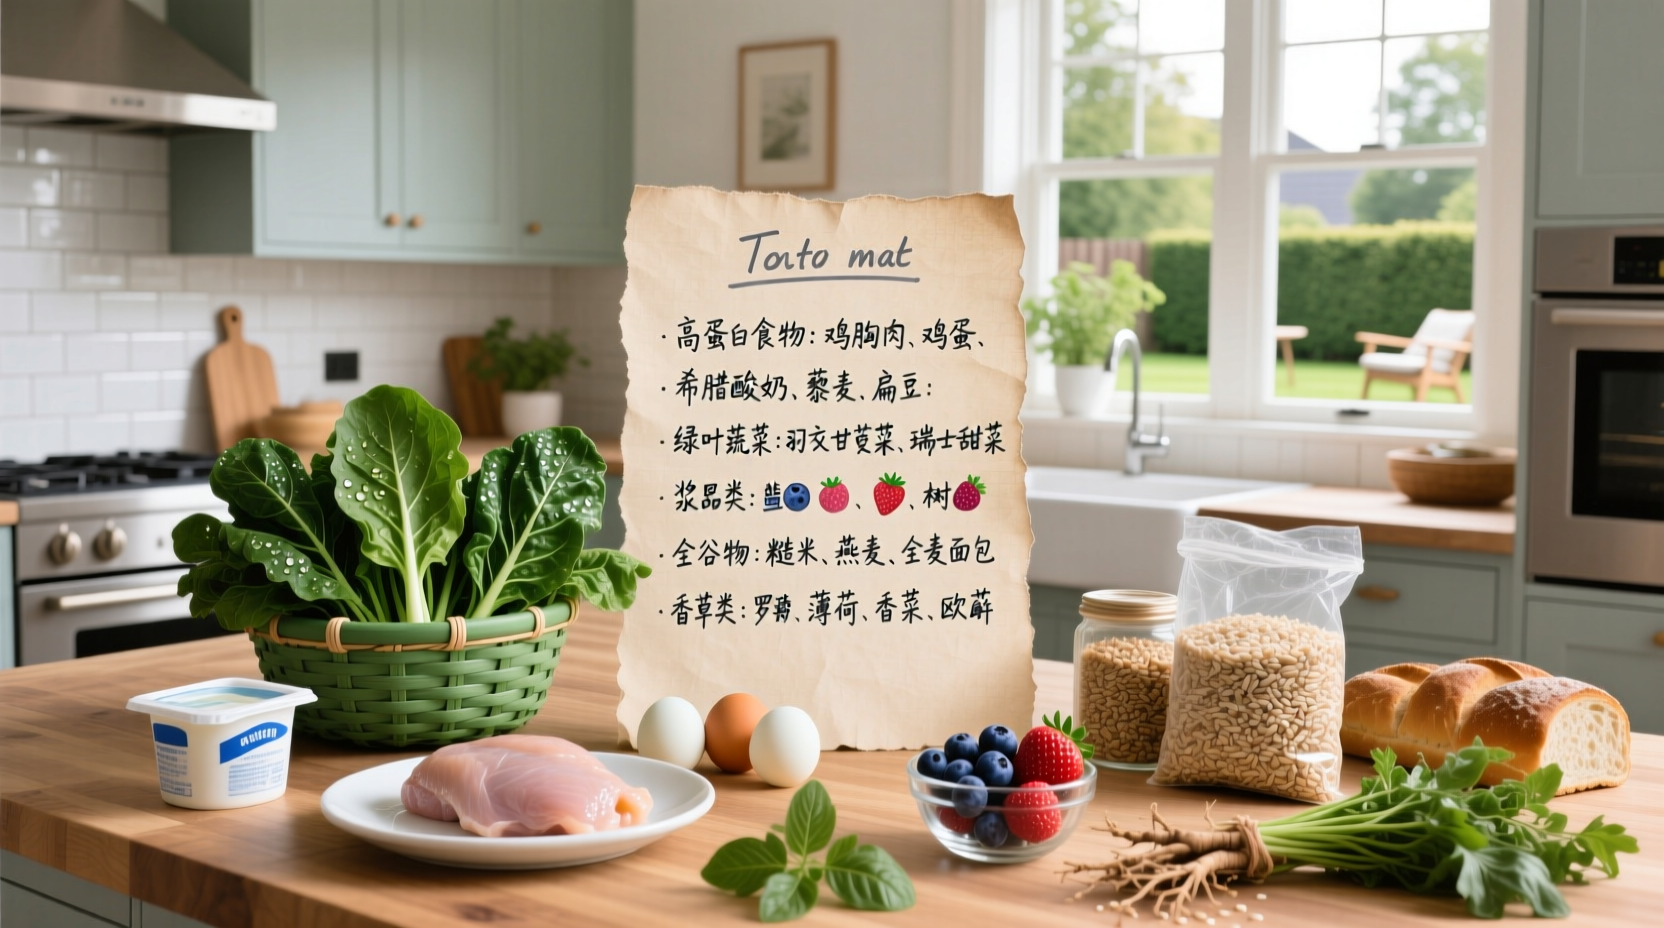 Tonto mat
· 高蛋白食物: 鸡胸肉、鸡蛋、
· 希腊酸奶、藜麦、扁豆:
· 绿叶蔬菜: 羽交甘菜、瑞士甜菜
· 浆品类: 、、树
· 全谷物: 糙米、燕麦、全麦面包
· 香草类: 罗、薄荷、香菜、欧